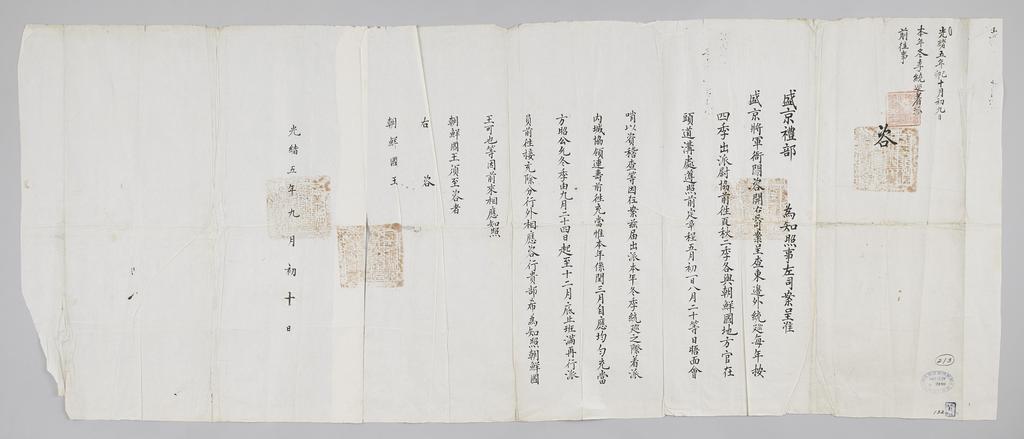 光緒五年己卯十月初九日
本年冬季統巡着派
前往事
咨
盛京禮部 為知照事左司案呈准
盛京將軍衙門咨開右司案呈查東邊外統巡每年按
四季出派尉協前往夏秋二季各與朝鮮國地方官在
頭道溝處遵照前定章程五月初一日八月二十等日晤面會
哨以資稽查等因在案茲届出派本年冬季統巡之際着派
內城協領連壽前往充當惟本年係閏三月自應均勻充當
方昭公允冬季由九月二十四日起至十二月底止班滿再行派
員前往接充除分行外相應咨行貴部希為知照朝鮮國
王可也等因前來相應知照
朝鮮國王須至咨者
右咨
朝鮮國王
光緒五年九月初十日
213
132